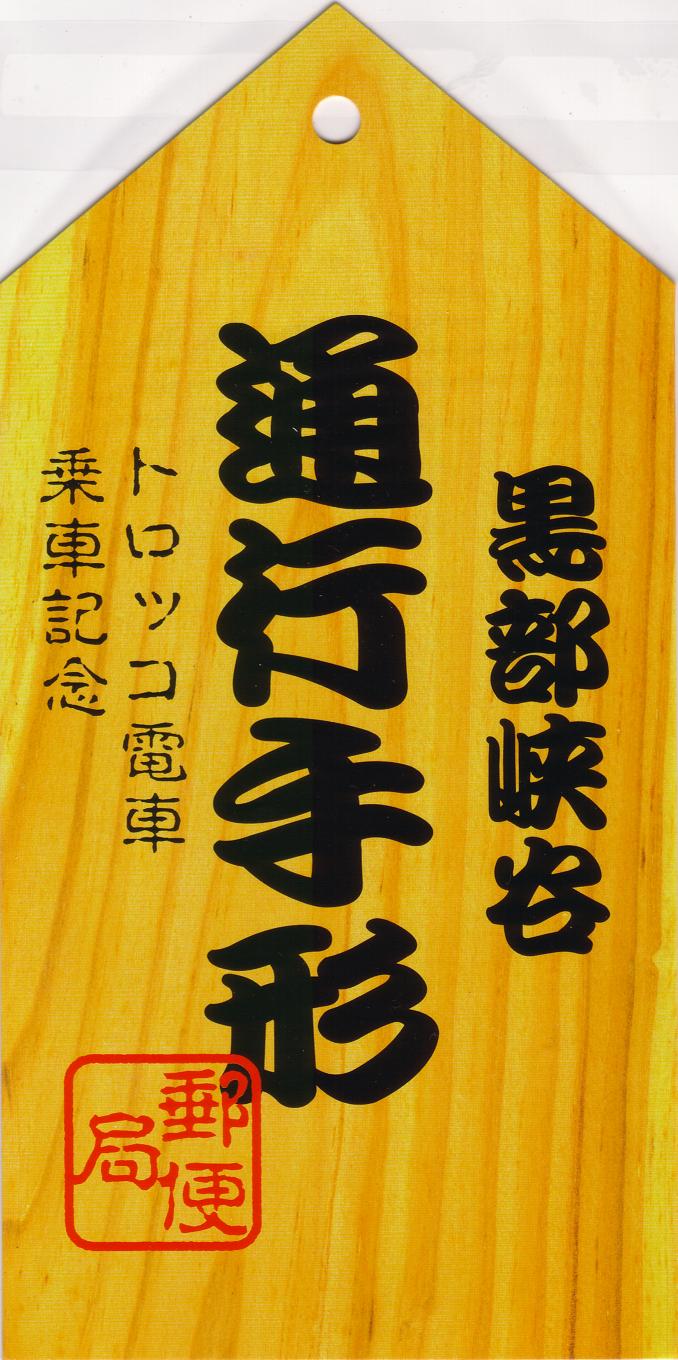 黒部峡谷
通行手形
トロッコ電車
乗車記念
郵便
局